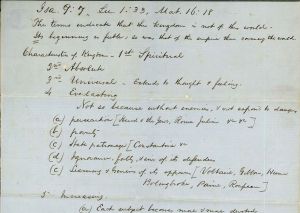 Isa 9:7. Lu 1:33, Mat. 16:18
The terms indicate that the Kingdom is not of the world.
Its beginning is feeble, so was that of the empire then covering the world
Characteristics of Kingdom - 1st Spiritual
2nd Absolute
3rd Universal - Extends to thought & feeling
4 Everlasting
Not so because without enemies, & not exposed to dangers
(a) persecution [ & the Jews, Rome
(b) poverty
(c) State patronage [Constantine
(d) Ignorance folly, & sins of its defenders
(e) Learning & Genius of its opposers [Voltaire, Gibbon, Hume
Bolingbroke, Paine, Rosseau]
5 Increasing.
(a) Each subject becomes more & more devoted